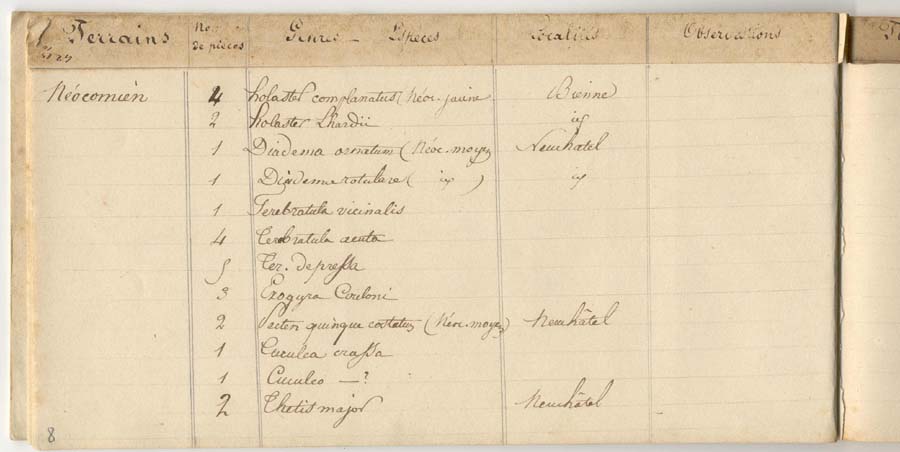 Terrains Nom de pièces Genres - Espèces Localités Observations
Néocomién 4 holaster complanatus (Néoc. jaune Bienne
2 holaster Lhardii id
1 Diadema ornatum (Néoc. moyen Neuchâtel
1 Diadema rotulare ( id ) id
1 Terebratula vicinalis
4 Terebratula acuta
5 Ter. depressa
3 Exogyra Couloni
2 Pecten quinque costatus (Néoc. moyen) Neuchâtel
1 Cuculea crassa
1 Cuculeo — ?
2 Thetis major Neuchâtel
8